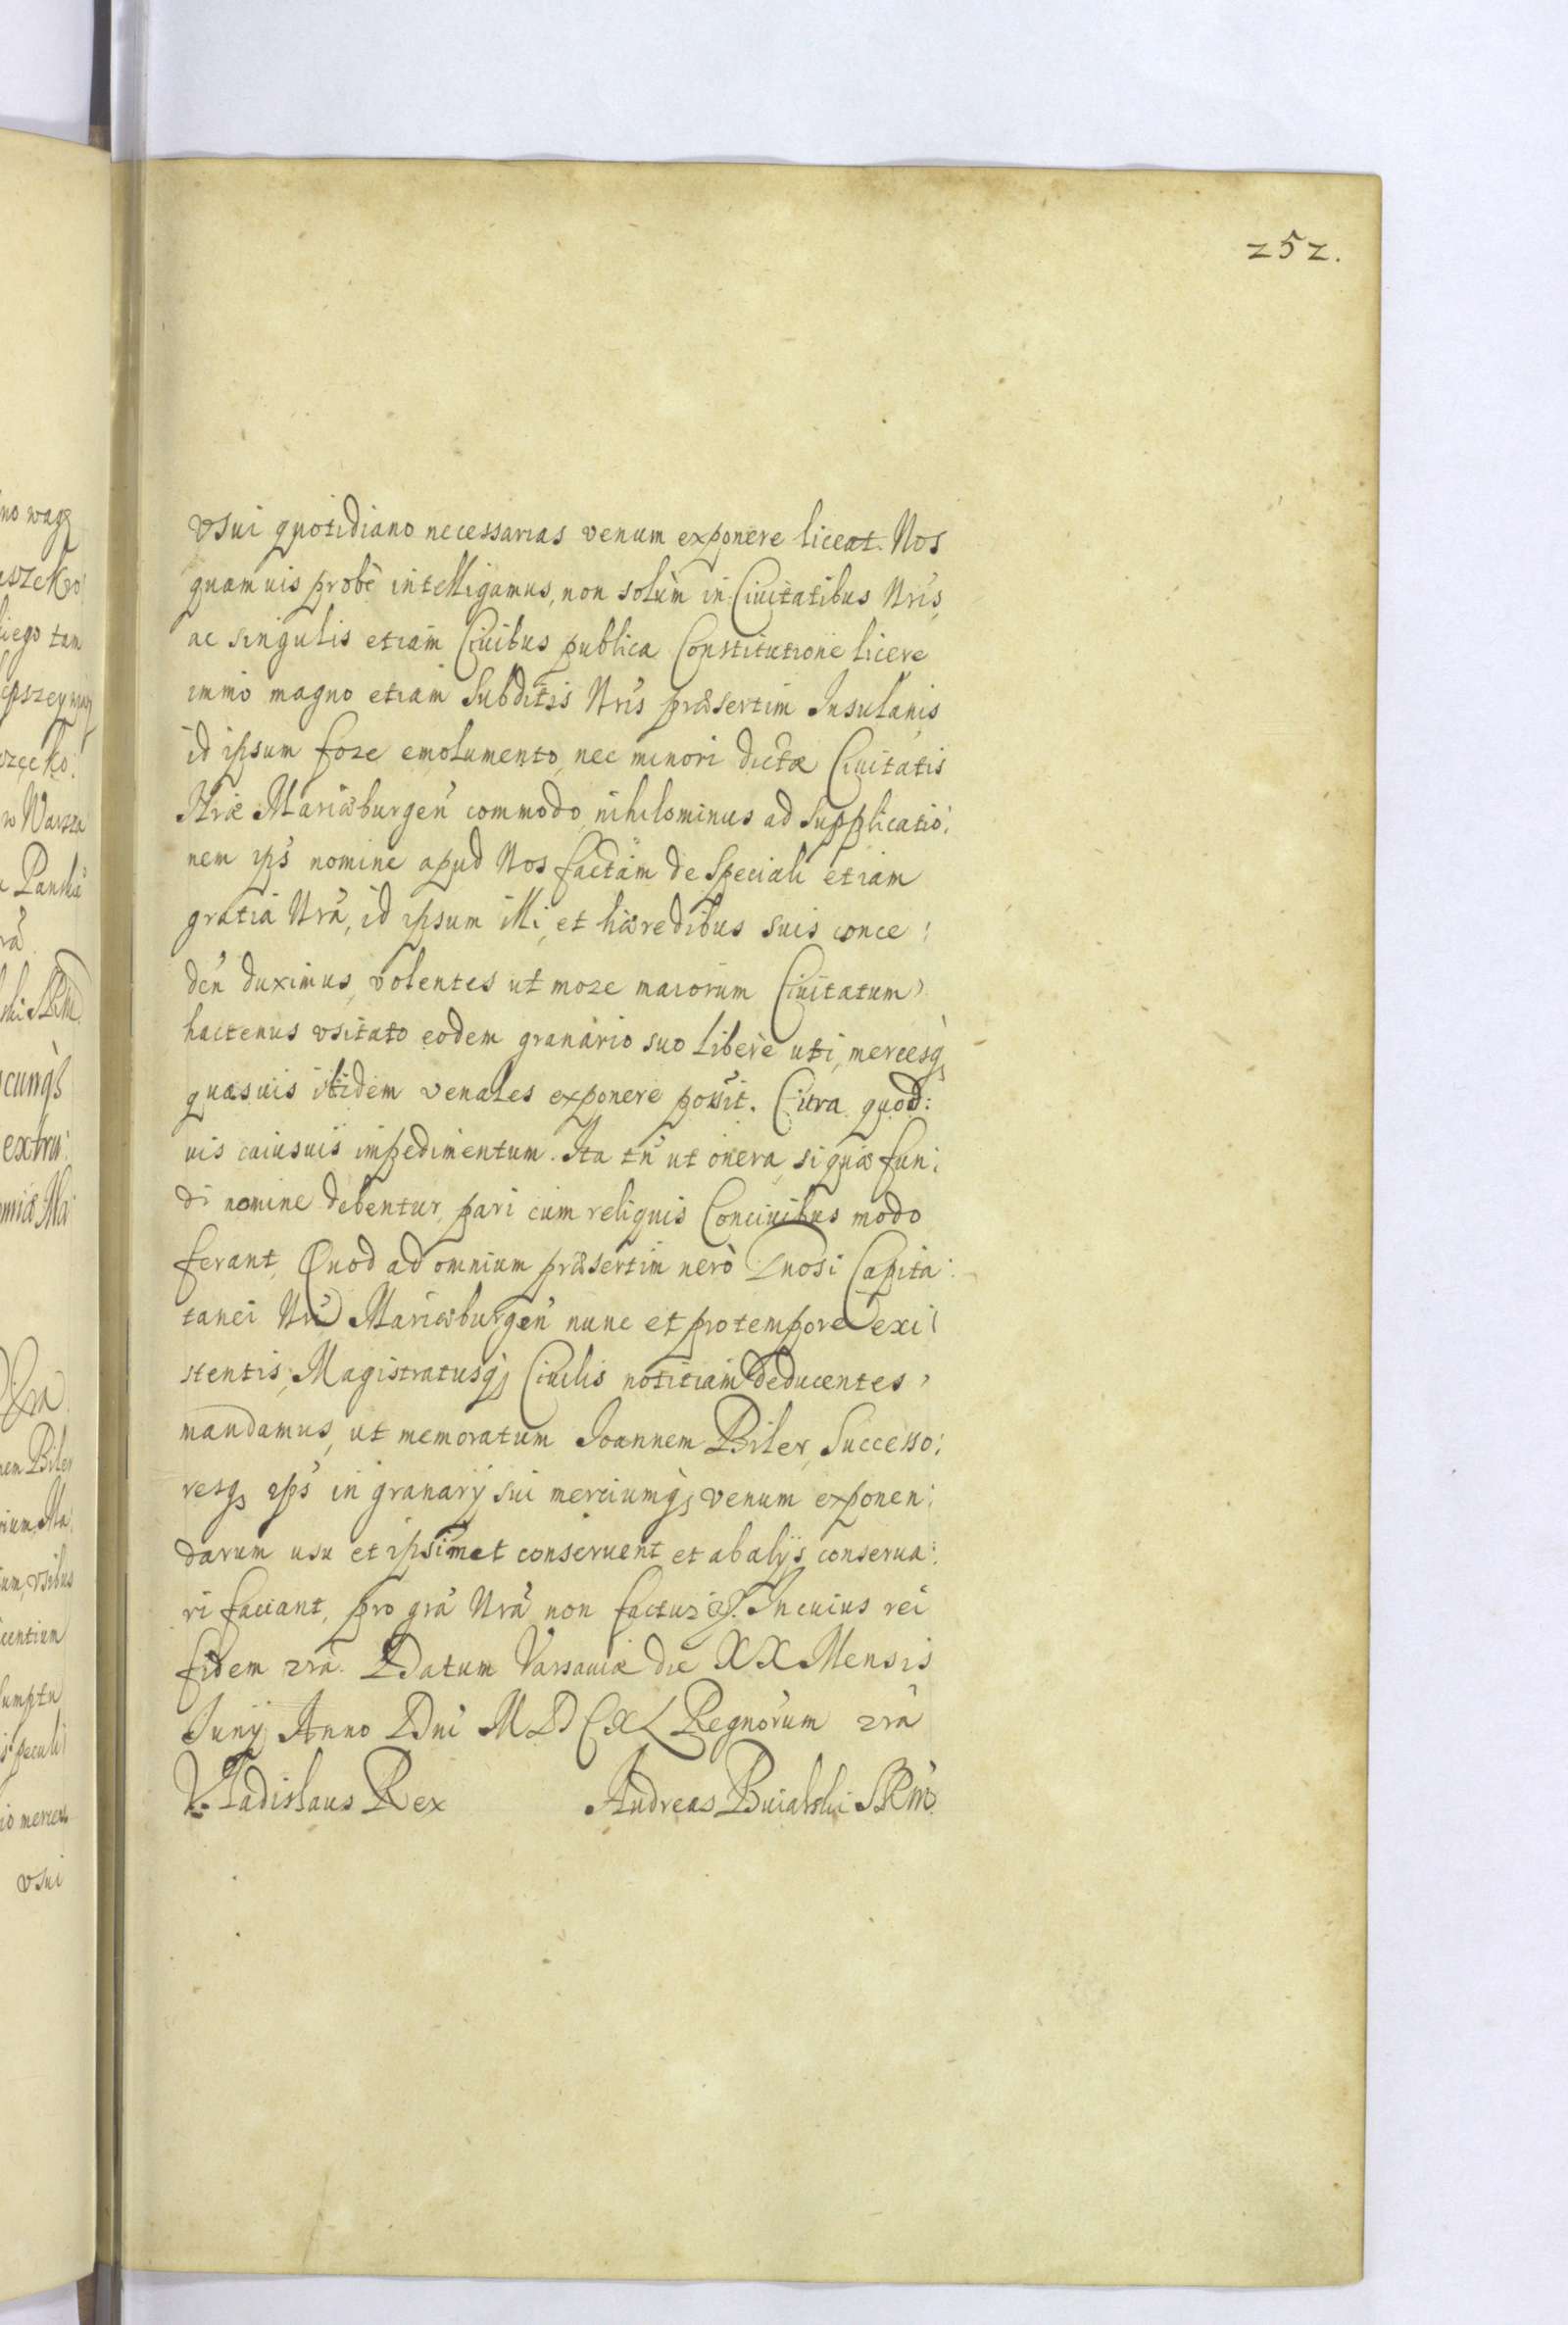 252.
vsui quotidiano necessarias venum exponere liceat. Nos
quamuis probè intelligamus, non solùm in Ciuitatibus Nris,
ac singulis etiam Ciuibus publica Constitutione licere
immo magno etiam Subditis Nris præsertim Insulanis
id ipsum fore emolumento, nec minori dictæ Ciuitatis
Nræ Mariæburgen commodo, nihilominus ad supplicatio:
nem ips nomine apud Nos factam de speciali etiam
gratia Nrã, id ipsum illi, et hæredibus suis conce:
den duximus, volentes ut more maiorum Ciuitatum,
hactenus vsitato eodem granario suo liberè uti, mercesq,
quasuis itidem venales exponere possit. Citra quod:
uis cuiusuis impedimentum. Ita tn ut onera siquæ fun:
di nomine debentur, pari cum reliquis Conciuibus modo
ferant, Quod ad omnium præsertim uerò Gnosi Capita:
tanei Nri Mariæburgen nunc et pro tempore exi:
stentis, Magistratusq; Ciuilis notitiam deducentes,
mandamus, ut memoratum Joannem Biler, Successo:
resq; ips in granarij sui merciumq; venum exponen:
darum usu et ipsimet conseruent et ab alijs conserua:
ri faciant, pro grã Nrã non factur. In cuius rei
fidem &rã. Datum Varsauiæ die XX Mensis
Junij Anno Dni MDCXL Regnorum &rã
Vladislaus Rex Andreas Buialski SRM
no wagę
iego tam
w Warsza
Panska
rã
ski SRM
cunq;
extru:
omiæ Ma:
nem Biler
rium, Ma:
um, vsibus
centium
sumptu
peculi
io merces
vsui